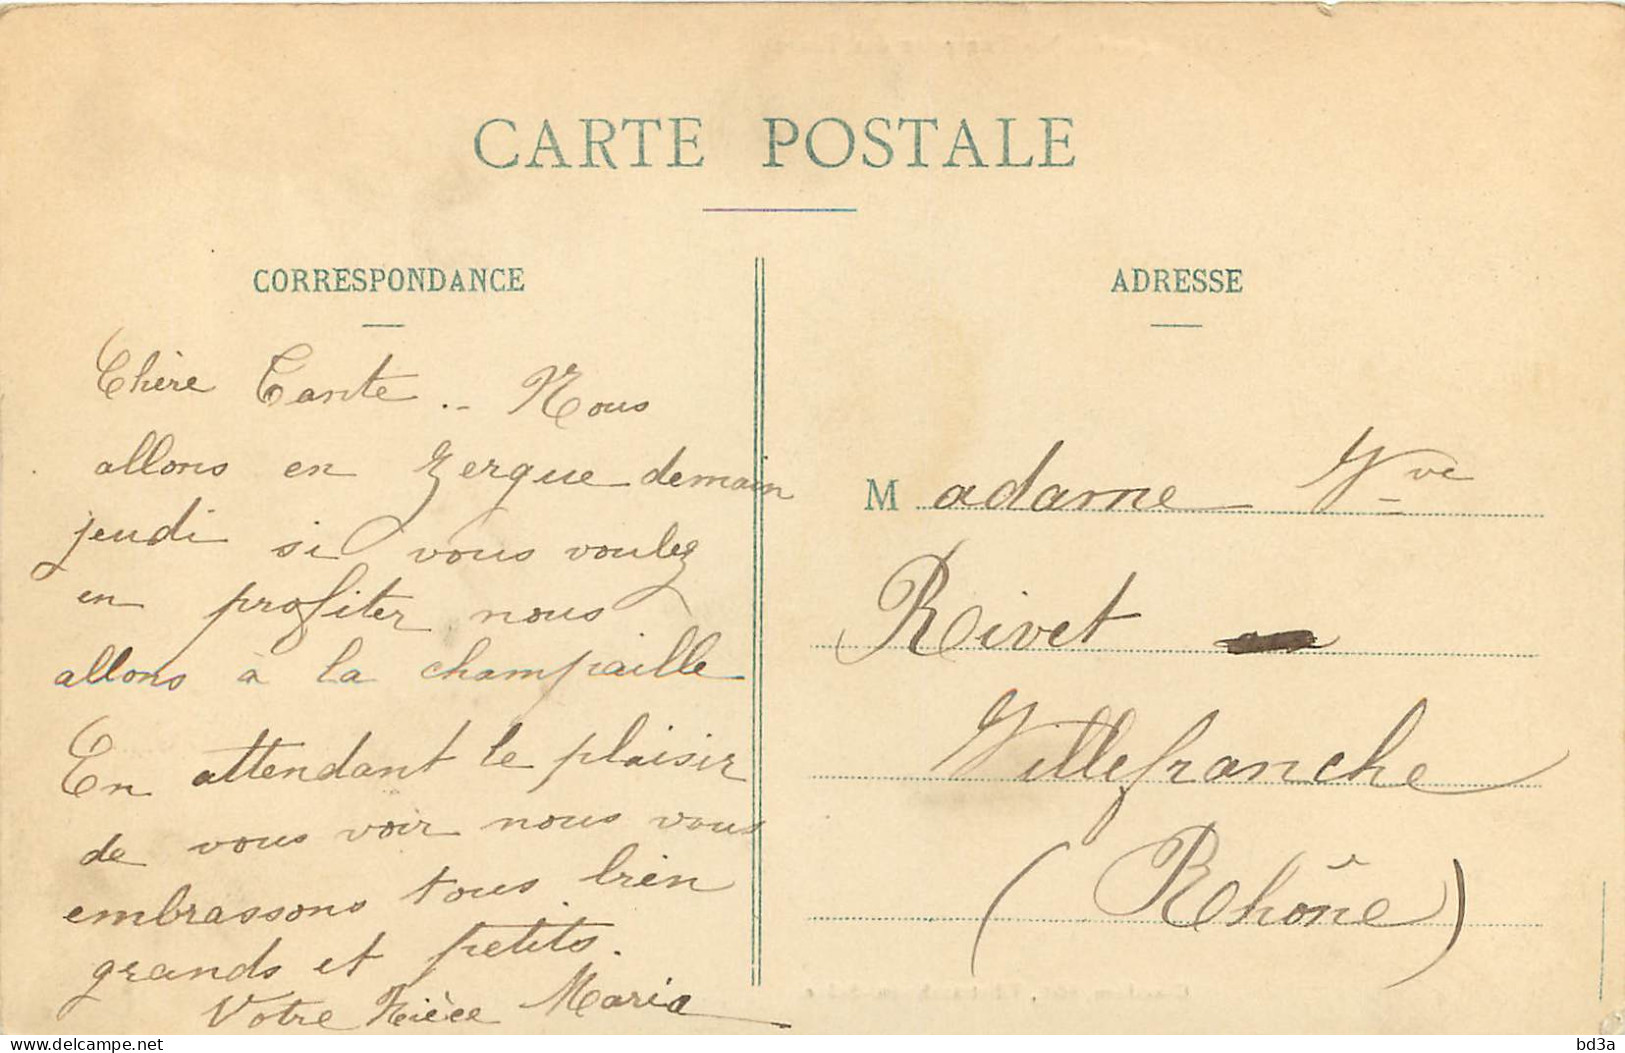 CARTE POSTALE
CORRESPONDANCE
Chère Tante .- Nous
allons en Zergue demain
jeudi si vous voulez
en profiter nous
allons à la champaille
En attendant le plaisir
de vous voir nous vous
embrassons tous bien
grands et petits.
Votre Nièce Maria
ADRESSE
Madame Vve
Rivet
Villefranche
(Rhône)
bd3a